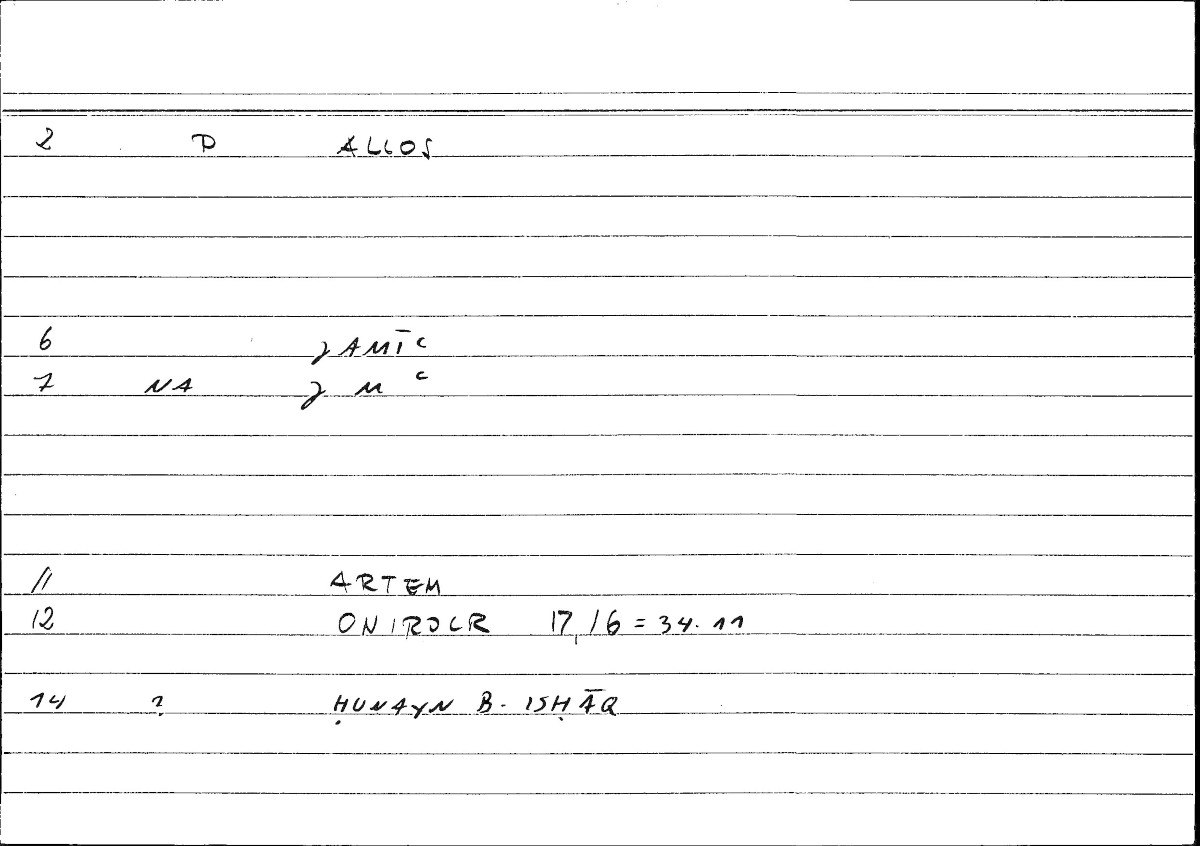 2 D ALLOS
6 JAMĪʿ
7 NA J M ʿ
11 ARTEM
12 ONIROCR 17,16 = 34.11
14 ? ḤUNAYN B. ISḤĀQ